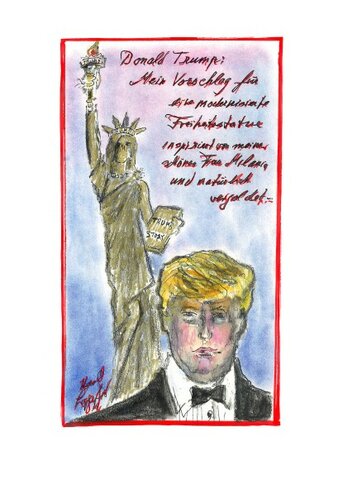 Donald Trump:
Mein Vorschlag für
eine modernisierte
Freiheitsstatue
inspiriert von meiner
Frau Melania
und natürlich
vergoldet.-
TRUMP
STORY